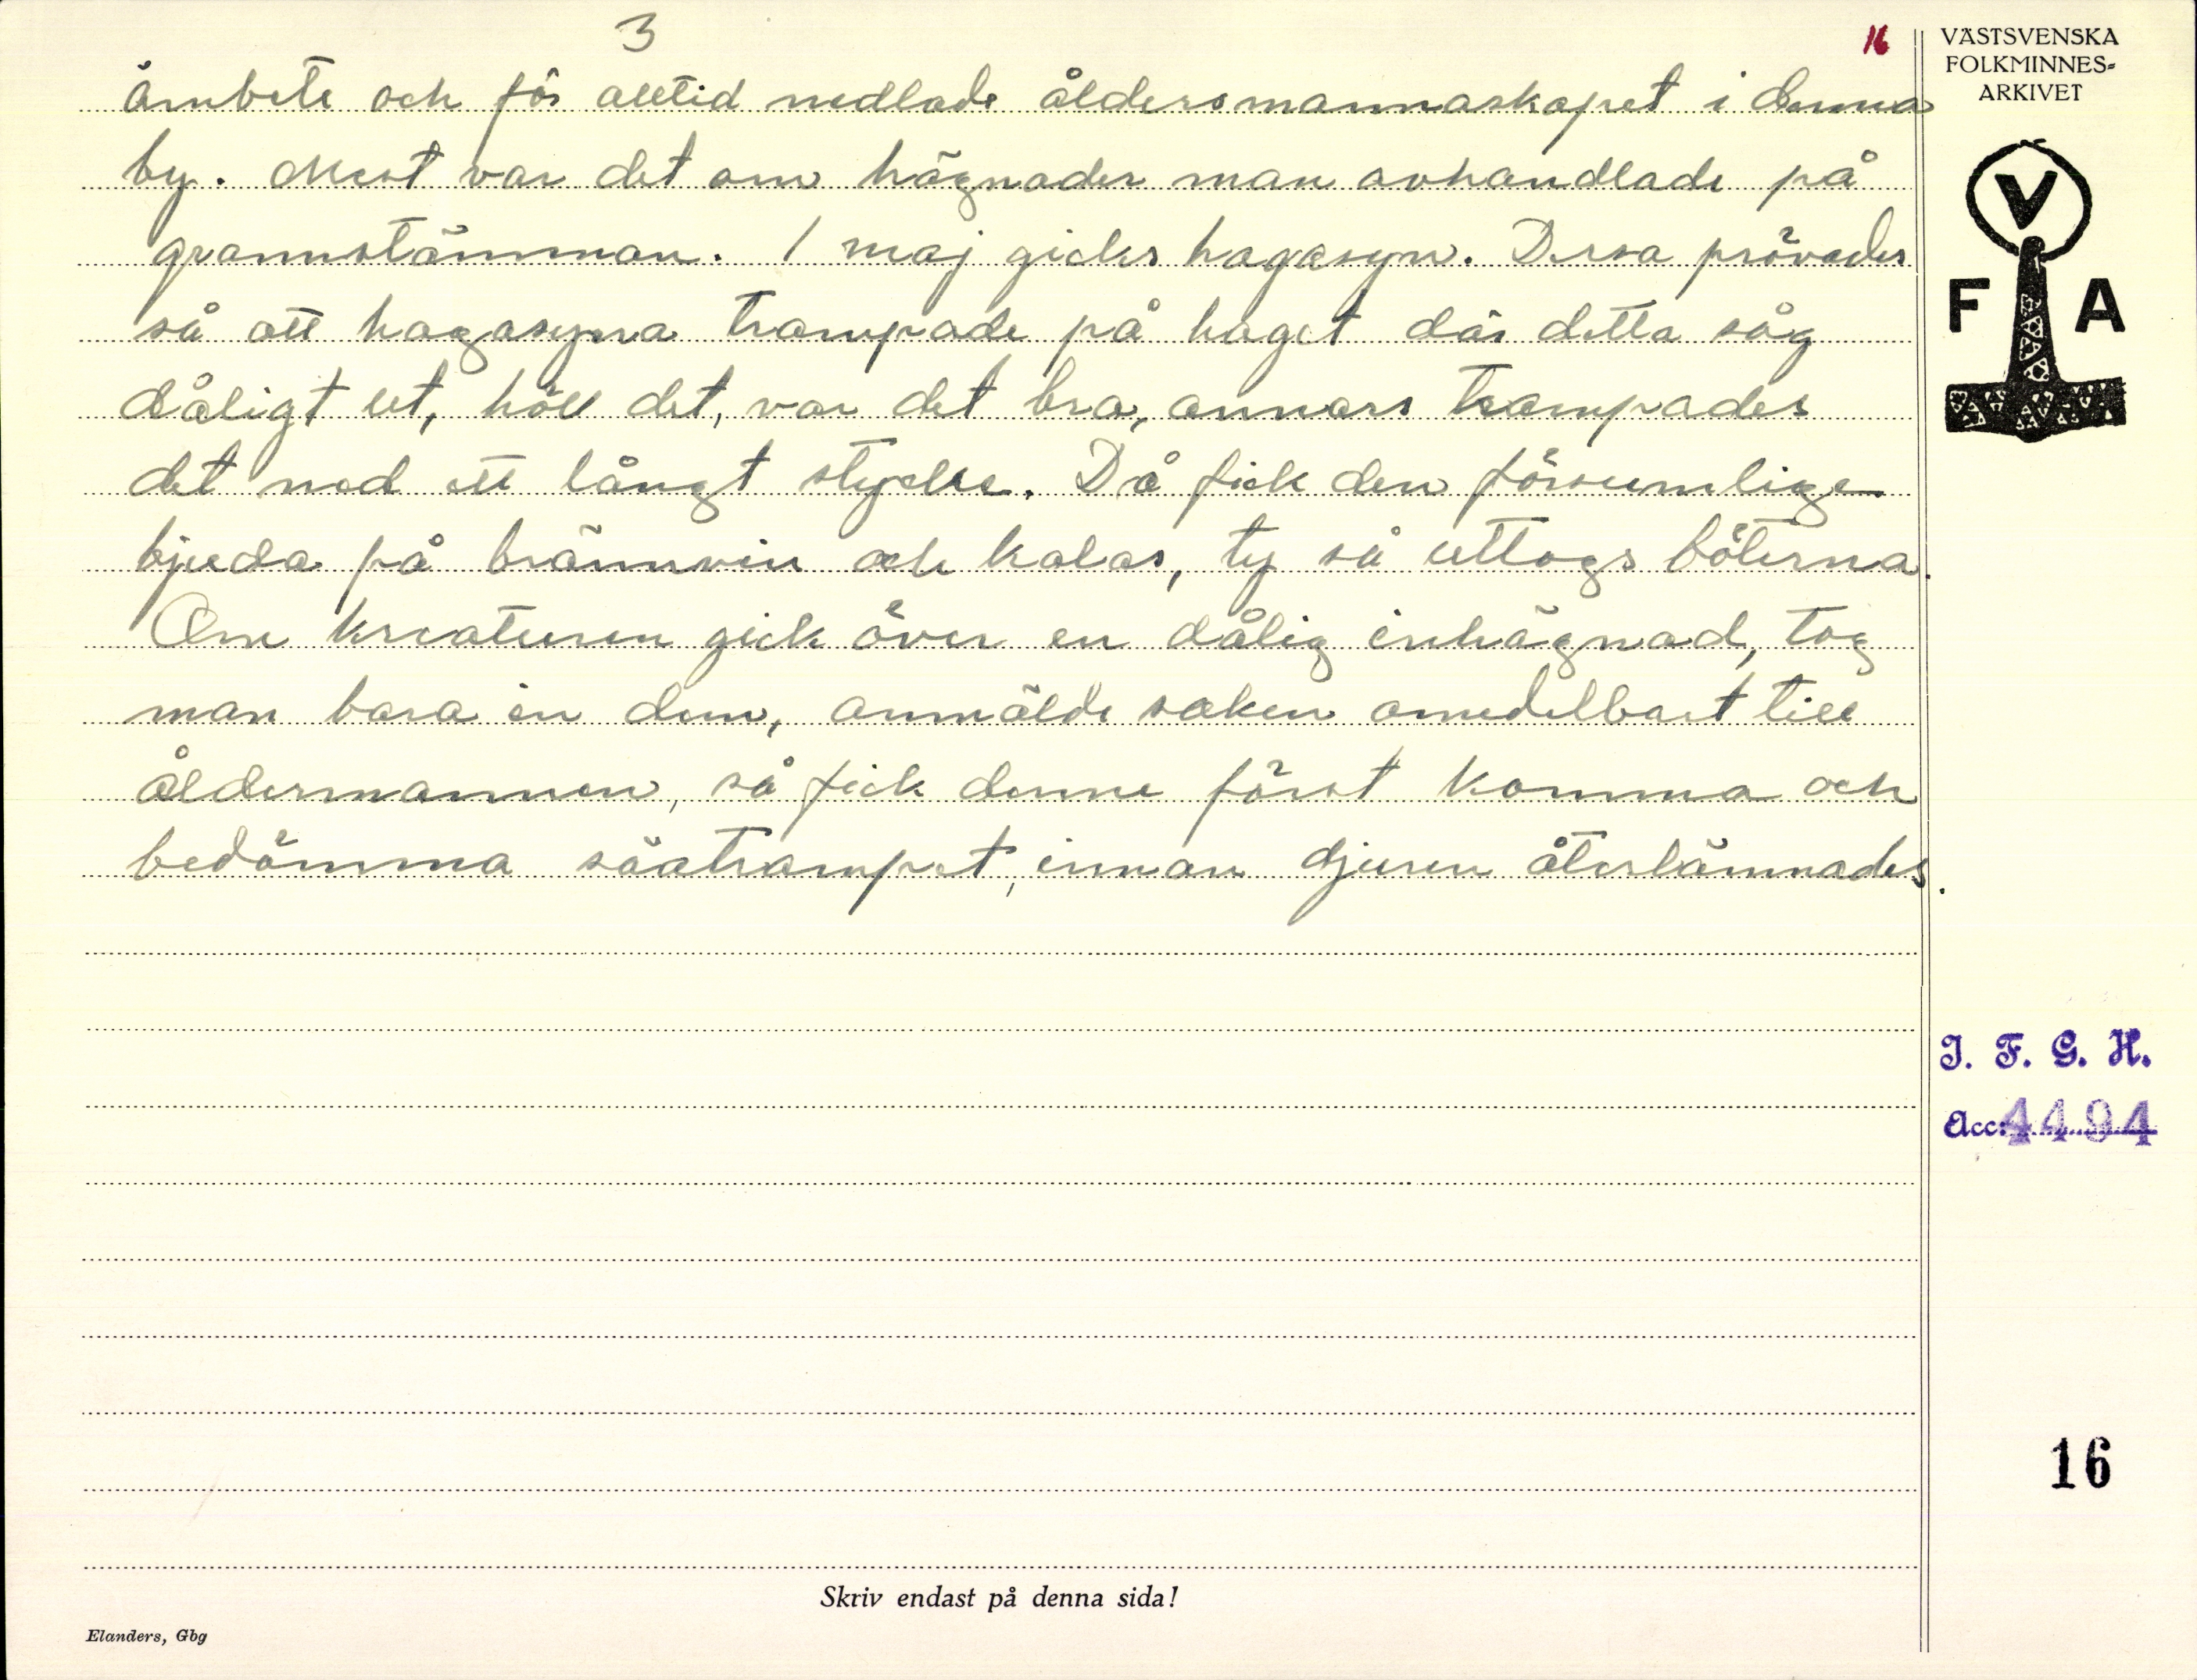 3
16
ämbete och för alltid nedlade åldersmannaskapet i denna
by. Mest var det om hägnader man avhandlade på
grannstämman. 1 maj gicks hagasyn. Dessa prövades
så att hagasyna trampade på haget där detta såg
dåligt ut, höll det, var det bra, annars trampades
det ned ett långt stycke. Då fick den försumlige
bjuda på brännvin och kalas, ty så uttogs böterna.
Om kreaturen gick över en dålig inhägnad, tog
man bara in dem, anmälde saken omedelbart till
åldermannen, så fick denne först komma och
bedömma säatrampet, innan djuren återlämnades.
VÄSTSVENSKA
FOLKMINNES-
ARKIVET
V
F A
I. F. G. H.
Acc: 4494
16
Skriv endast på denna sida!
Elanders, Gbg